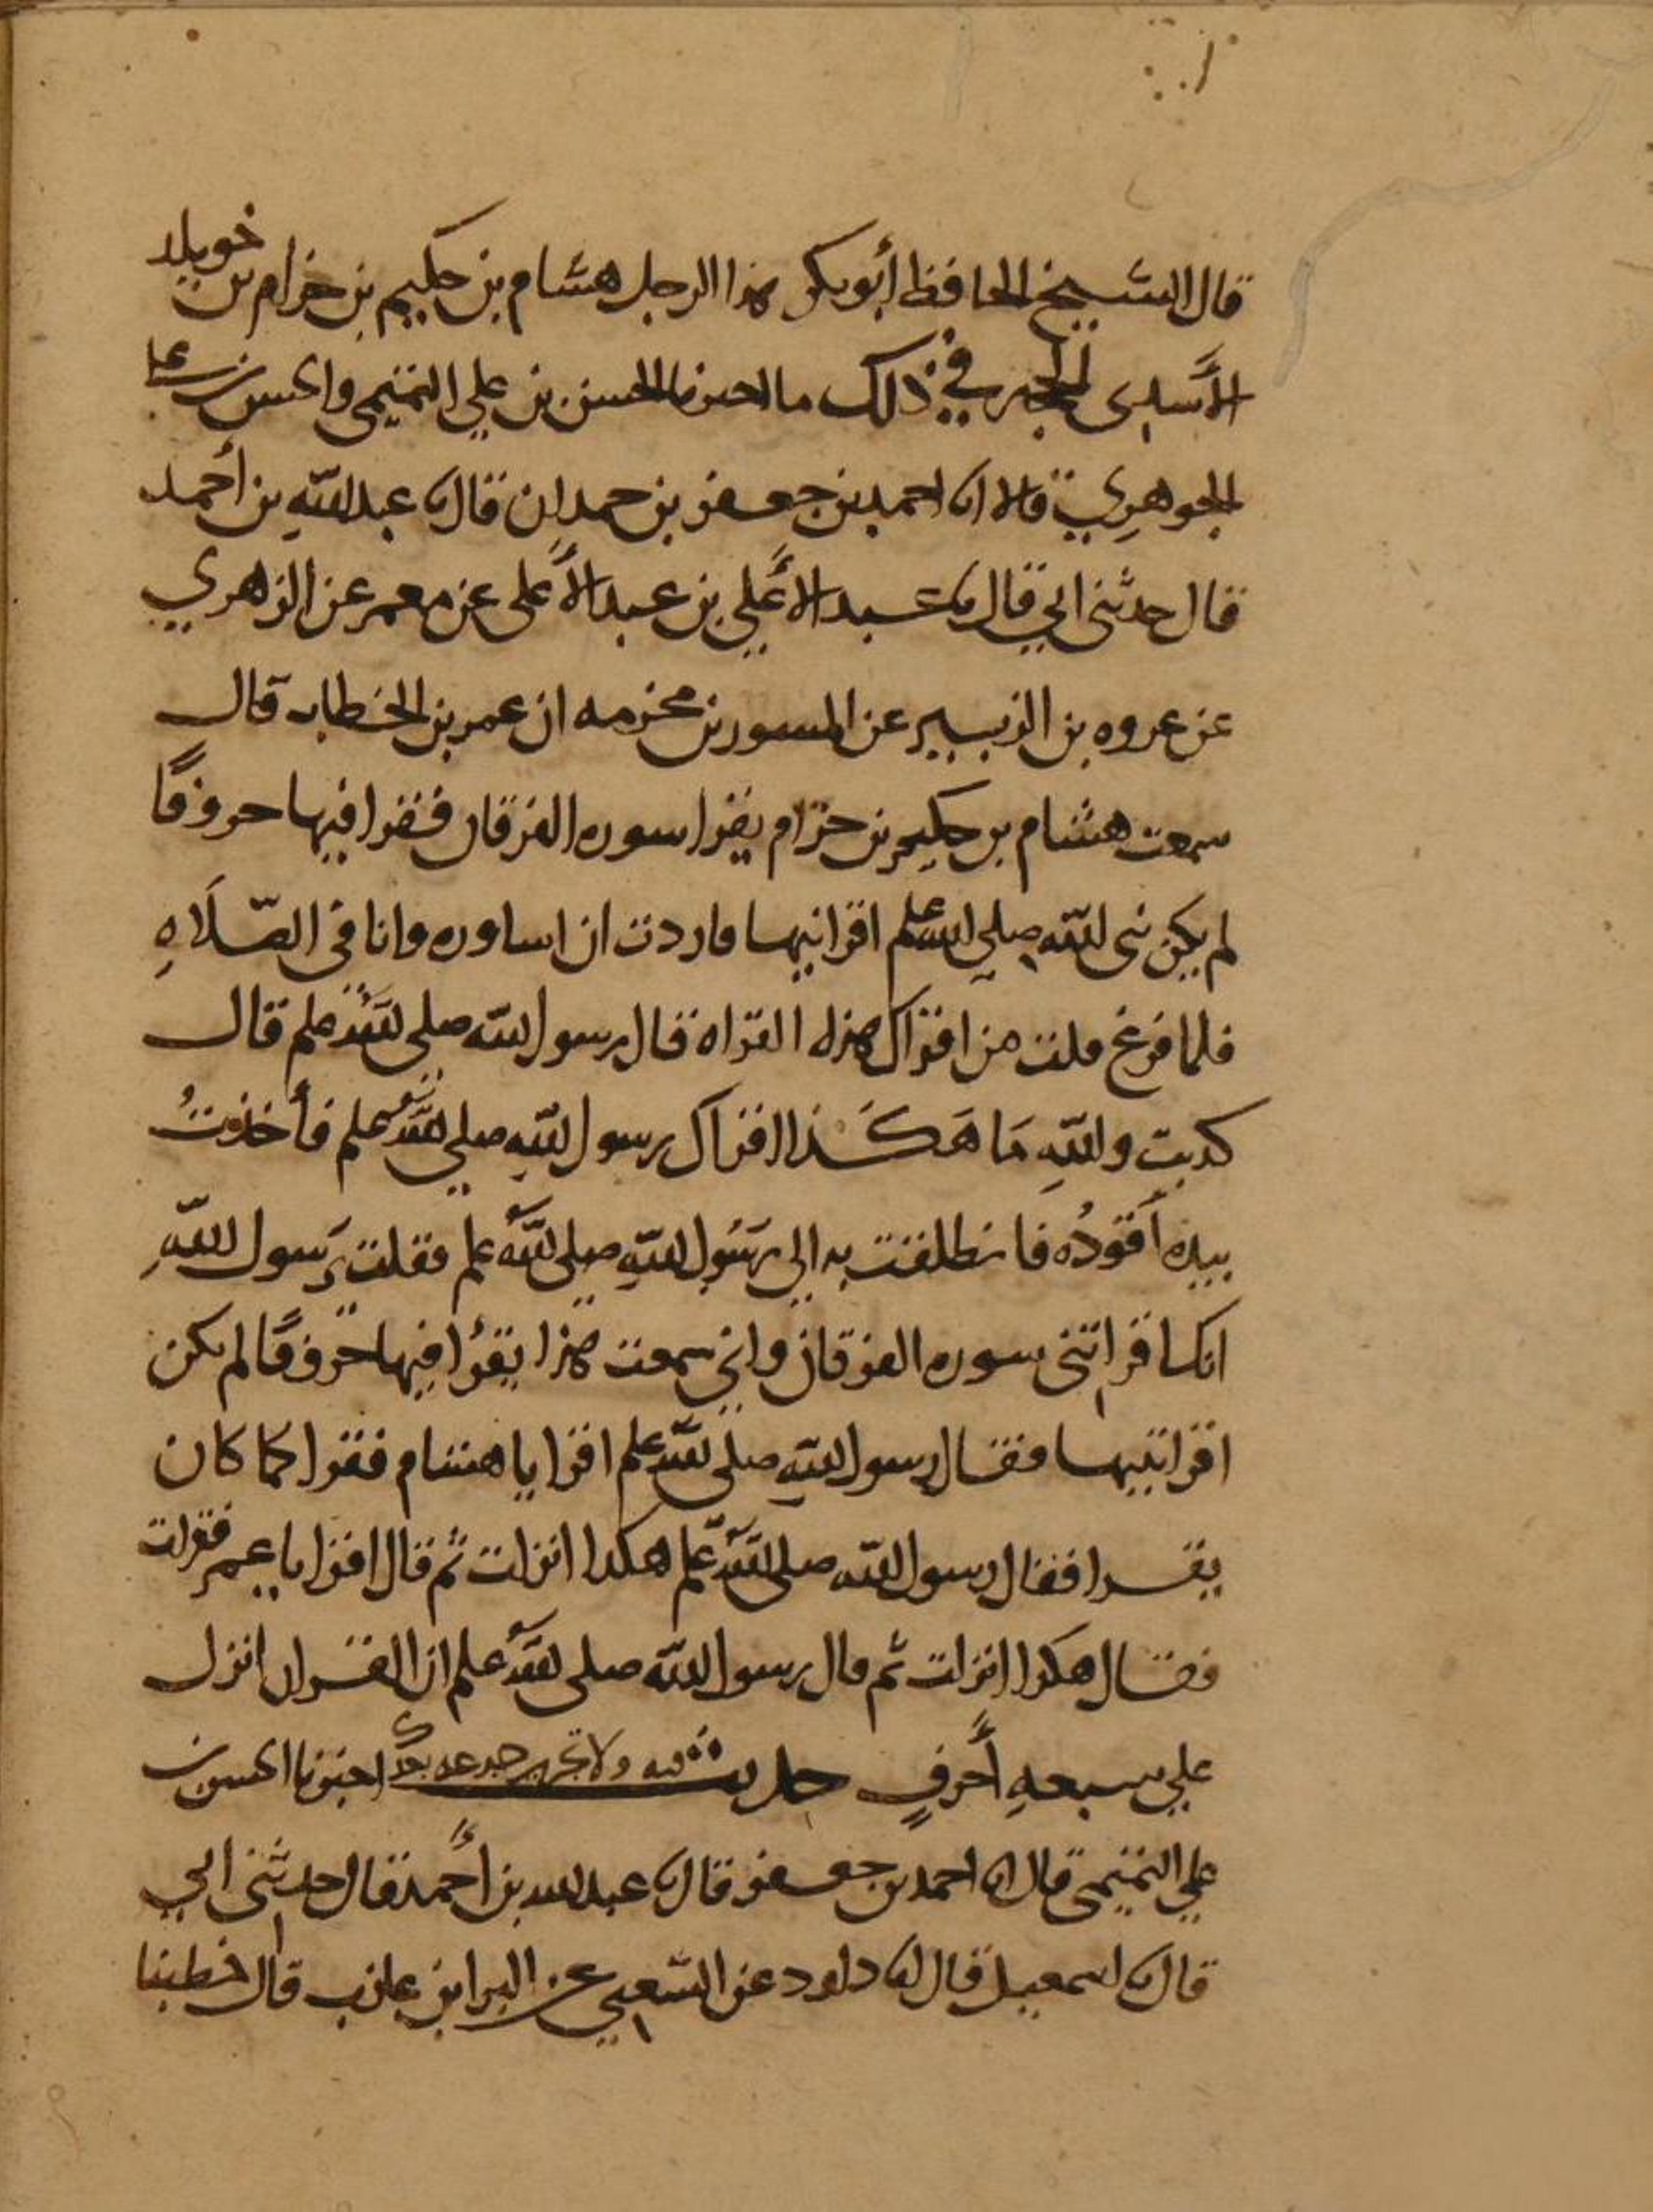 قال الشيخ الحافظ أبو بكر هذا الرجل هشام بن حكيم بن حزام بن خويلد
الأسدى الحجه في ذلك ما اخبرنا الحسن بن علي التميمي والحسن بن علي
الجوهري قالا انا احمد بن جعفر بن حمدان قال نا عبد الله بن أحمد
قال حدثني ابي قال نا عبد الأعلي بن عبد الأعلى عن معمر عن الزهري
عن عروه بن الزبير عن المسور بن مخرمه ان عمر بن الخطاب قال
سمعت هشام بن حكيم بن حزام يقرا سوره الفرقان فقرا فيها حروفًا
لم يكن نبي الله صلي الله علم اقرانيها فاردت ان اساوره وانا في الصلاهِ
فلما فرغ قلت من اقراك هذه القراه قال رسول الله صلى الله علم قال
كذبت واللهِ مَا هَكَذا اقراك رسول اللهِ صلي الله علم فأخذتُ
بيده أقودُه فانطلقت به الي رسُول اللهِ صلى الله علم فقلت يرَسول اللهِ
انك اقراتني سوره الفرقان واني سمعت هذا يقرؤا فيها حروفًا لم يكن
اقراتنيها فقال رسول اللهِ صلى الله علم اقرا يا هشام فقرا كما كان
يقرا فقال رسول الله صلى الله علم هكذا انزلت ثم قال اقرا يا عمر فقرات
فقال هكذا انزلت ثم قال رسول الله صلى الله علم ان القران انزل
علي سبعهِ أحرفٍ حديث فيه ولا تجزي جذعه اخبرنا الحسن بن
علي التميمي قال انا احمد بن جعفر قال نا عبد الله بن أحمد قال حدثني ابي
قال نا اسمعيل قال انا داود عن الشعبي عن البرا بن عازب قال خطبنا